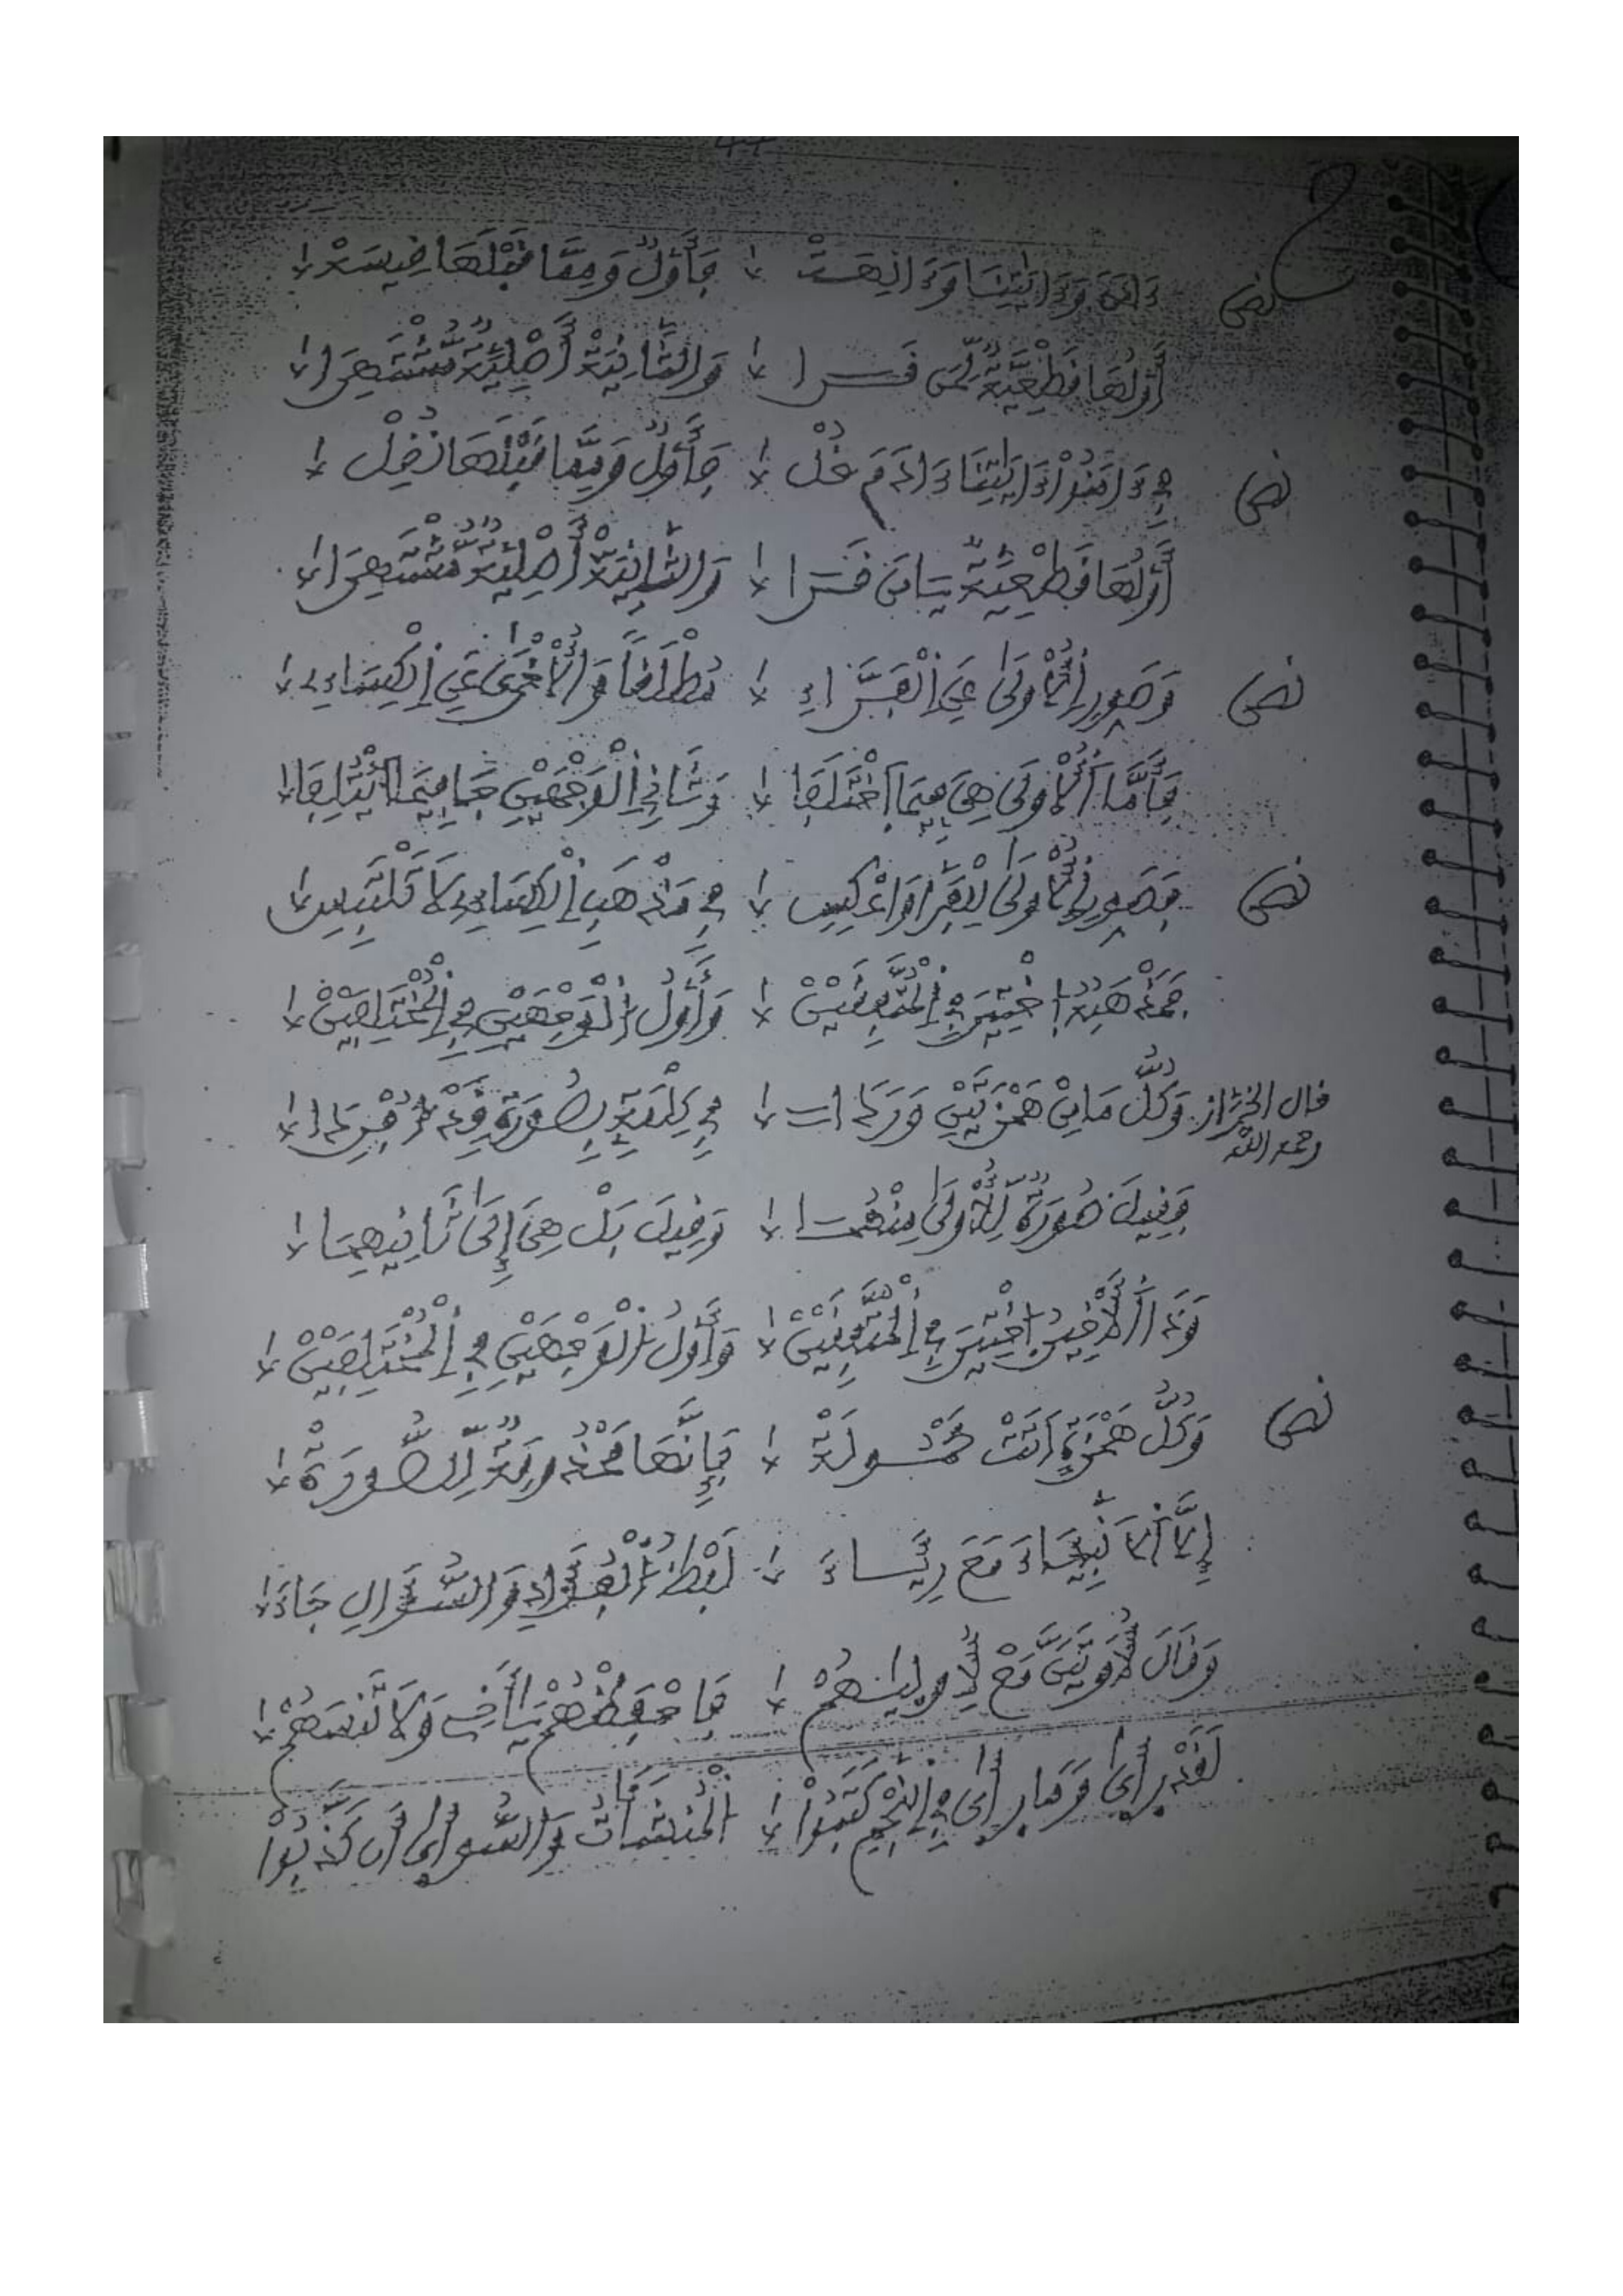 نص ءادم وءاياتنا وءالهت فأول ومما قبلها قيست
أولها قطعية لمن قرا والثانية أصلية مشتهرا
نص في ءامنوا ءاياتنا ءادم قل فأول ومما قبلها نقل
أولها قطعية يا من قرا والثانية أصلية مشتهرا
نص وصور الأولى عن الفراء مطلقا والأخرى عن الكساء
فأما الأولى هي فيما اختلفا وثاني الوجهين جا فيما ائتلفا
نص فصور الأولى للفرا واعكس في مذهب الكساء لا تلتبس
فهذه اختير في المتفقين وأول الوجهين في المختلفين
قال الخراز رحمه الله وكل ما من همزتين وردا في كلمة بصورة قد أفردا
وقيل صورة للأولى منهما وقيل بل هي إلى ثانيهما
وذا الأخير اختير في المتفقين وأول الوجهين في المختلفين
نص وكل همزة أتت مسولة فإنها محذوفة للصورة
إلا الأنبئاء مع رئاء لفظ الفؤاد والسؤال جاء
وقال لأوتين مع لأوليهم فاحفظهم يا أخي ولا تنسهم
لقد رأى وما رأى في النجم كتبوا المنشئات والسوأى أن كذبوا